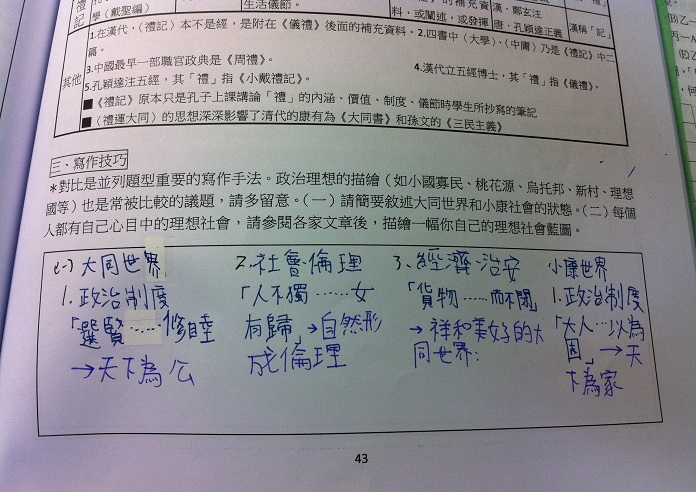 禮記
學(戴聖編)
生活儀節。
的補充資
料,或闡述,或發揮
漢,鄭玄注
唐,孔穎達正義
漢稱「記」
其他
1.在漢代,〈禮記〉本不是經,是附在《儀禮》後面的補充資料。
2.四書中〈大學〉、〈中庸〉乃是《禮記》中二
篇。
3.中國最早一部職官政典是《周禮》。
4.漢代立五經博士,其「禮」指《儀禮》。
5.孔穎達注五經,其「禮」指《小戴禮記》。
■《禮記》原本只是孔子上課講論「禮」的內涵、價值、制度、儀節時學生所抄寫的筆記
■〈禮運大同〉的思想深深影響了清代的康有為《大同書》和孫文的《三民主義》
三、寫作技巧
*對比是並列題型重要的寫作手法。政治理想的描繪(如小國寡民、桃花源、烏托邦、新村、理想
國等)也是常被比較的議題,請多留意。(一)請簡要敘述大同世界和小康社會的狀態。(二)每個
人都有自己心目中的理想社會,請參閱各家文章後,描繪一幅你自己的理想社會藍圖。
(一)大同世界
1.政治制度
「選賢……修睦
→天下為公
2.社會倫理
「人不獨……女
有歸」→自然形
成倫理
3、經濟治安
「貨物……而不閉」
→祥和美好的大
同世界:
小康世界
1.政治制度
「大人…以為
固」→天
下為家
43